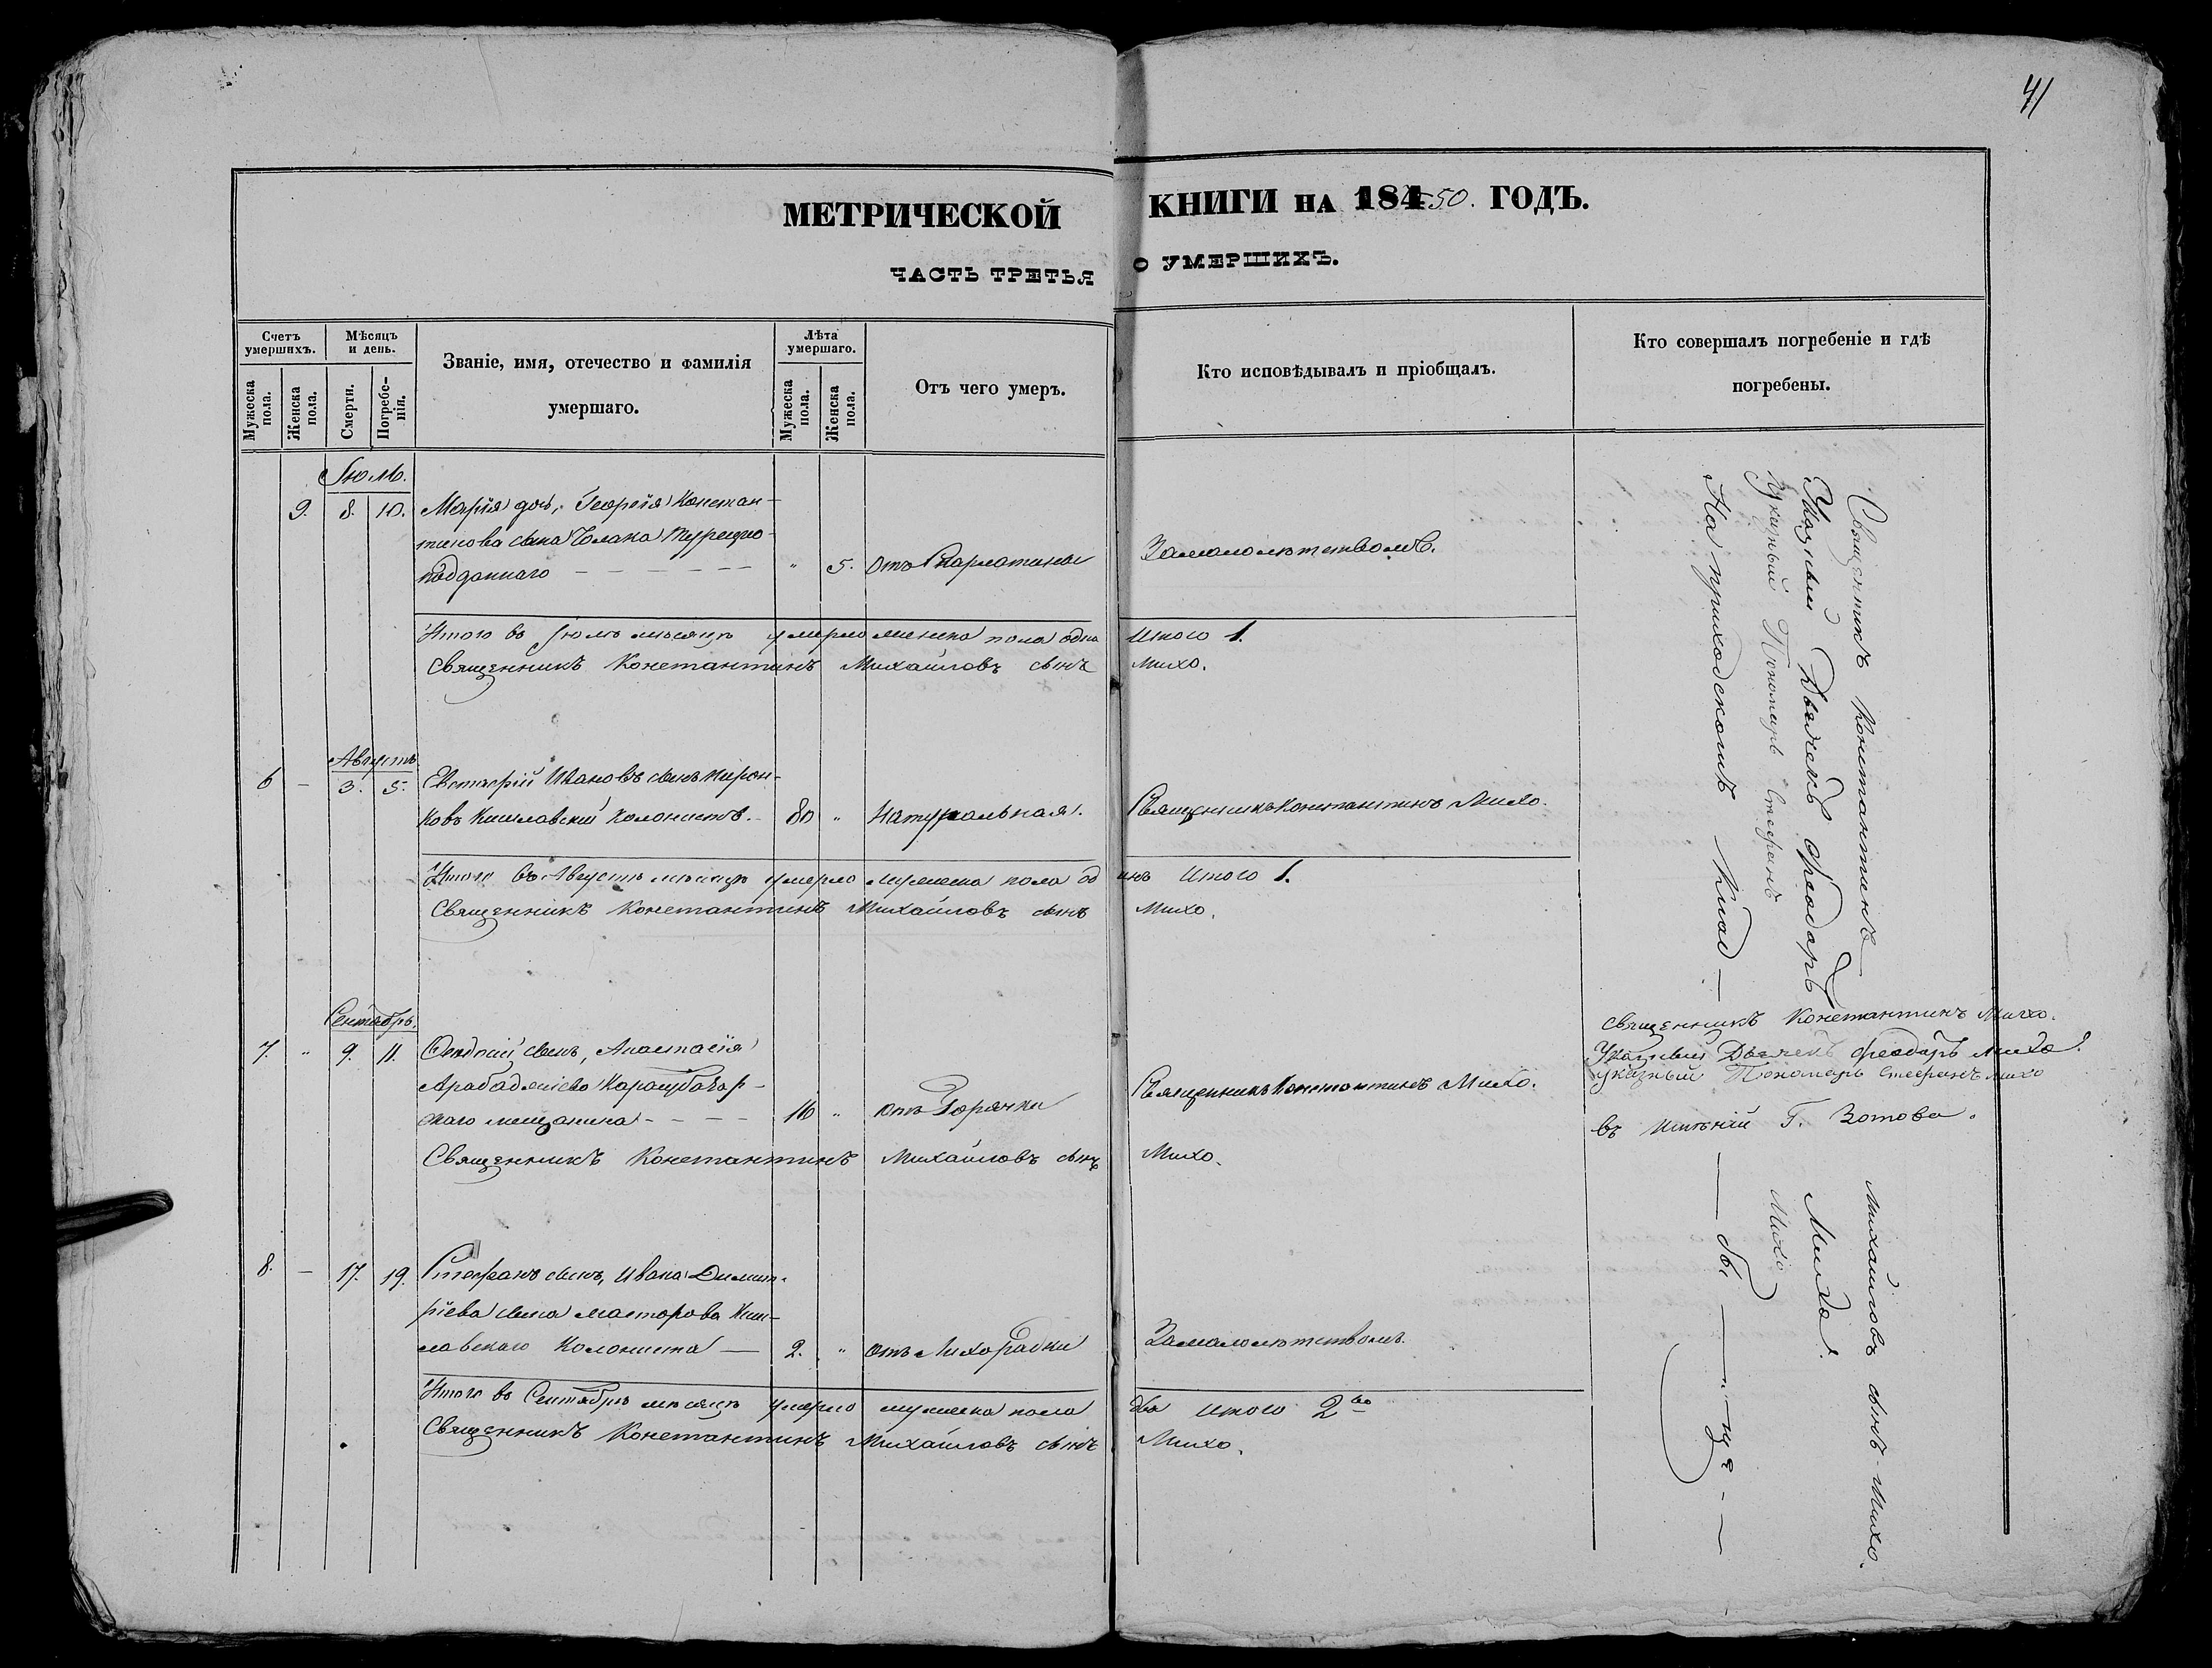 41
МЕТРИЧЕСКОЙ КНИГИ НА 184 50. ГОДЪ.
ЧАСТЬ ТРЕТЬЯ О УМЕРШИХЪ.
Счетъ умершихъ.
Мужеска пола.
Женска пола.
Мѣсяцъ и день.
Смерти.
Погребе-
нія.
Званіе, имя, отечество и фамилія
умершаго.
Лѣта умершаго.
Мужеска пола.
Женска пола.
Отъ чего умеръ.
Кто исповѣдывалъ и пріобщалъ.
Кто совершалъ погребеніе и гдѣ
погребены.
Іюль.
9. 8. 10. Марія дочь, Георгія Констан-
тинова сына Чолака Турецко-
подданнаго — " 5. отъ Скарлатины За малолѣтствомъ.
Итого въ Іюль мѣсяцѣ умерло женска пола одна Итого 1.
Священникъ Константинъ Михайловъ сынъ Михо.
Августъ.
6 — 3. 5. Евстафій Ивановъ сынъ Кирон-
ковъ Кишлавскій колонистъ. 80 " Натуральная. Священникъ Константинъ Михо.
Итого въ Августѣ мѣсяцѣ умерло мужеска пола одинъ Итого 1.
Священникъ Константинъ Михайловъ сынъ Михо.
Сентябрь.
7. " 9. 11. Феодосій сынъ, Анастасія
Арабаджіева Карасубазар-
скаго мещанина — 16 " отъ Горячки Священникъ Константинъ Михо.
Священникъ Константинъ Михайловъ сынъ Михо.
8. — 17. 19. Стефанъ сынъ, Ивана Димит-
ріева сына Масторова Киш-
лавскаго колониста — 2. " отъ Лихорадки За малолѣтствомъ.
Итого въ Сентябрѣ мѣсяцѣ умерло мужеска пола два Итого 2ва
Священникъ Константинъ Михайловъ сынъ Михо.
Священникъ Константинъ Михайловъ сынъ Михо.
Указный Дьячекъ Феодоръ Михо.
Указный Пономарь Стефанъ Михо
На приходскомъ Клад — — бі — — щѣ — —
Священникъ Константинъ Михо.
Указный Дьячекъ Феодоръ Михо.
Указный Пономарь Стефанъ Михо
въ имѣніи Г. Зотова.